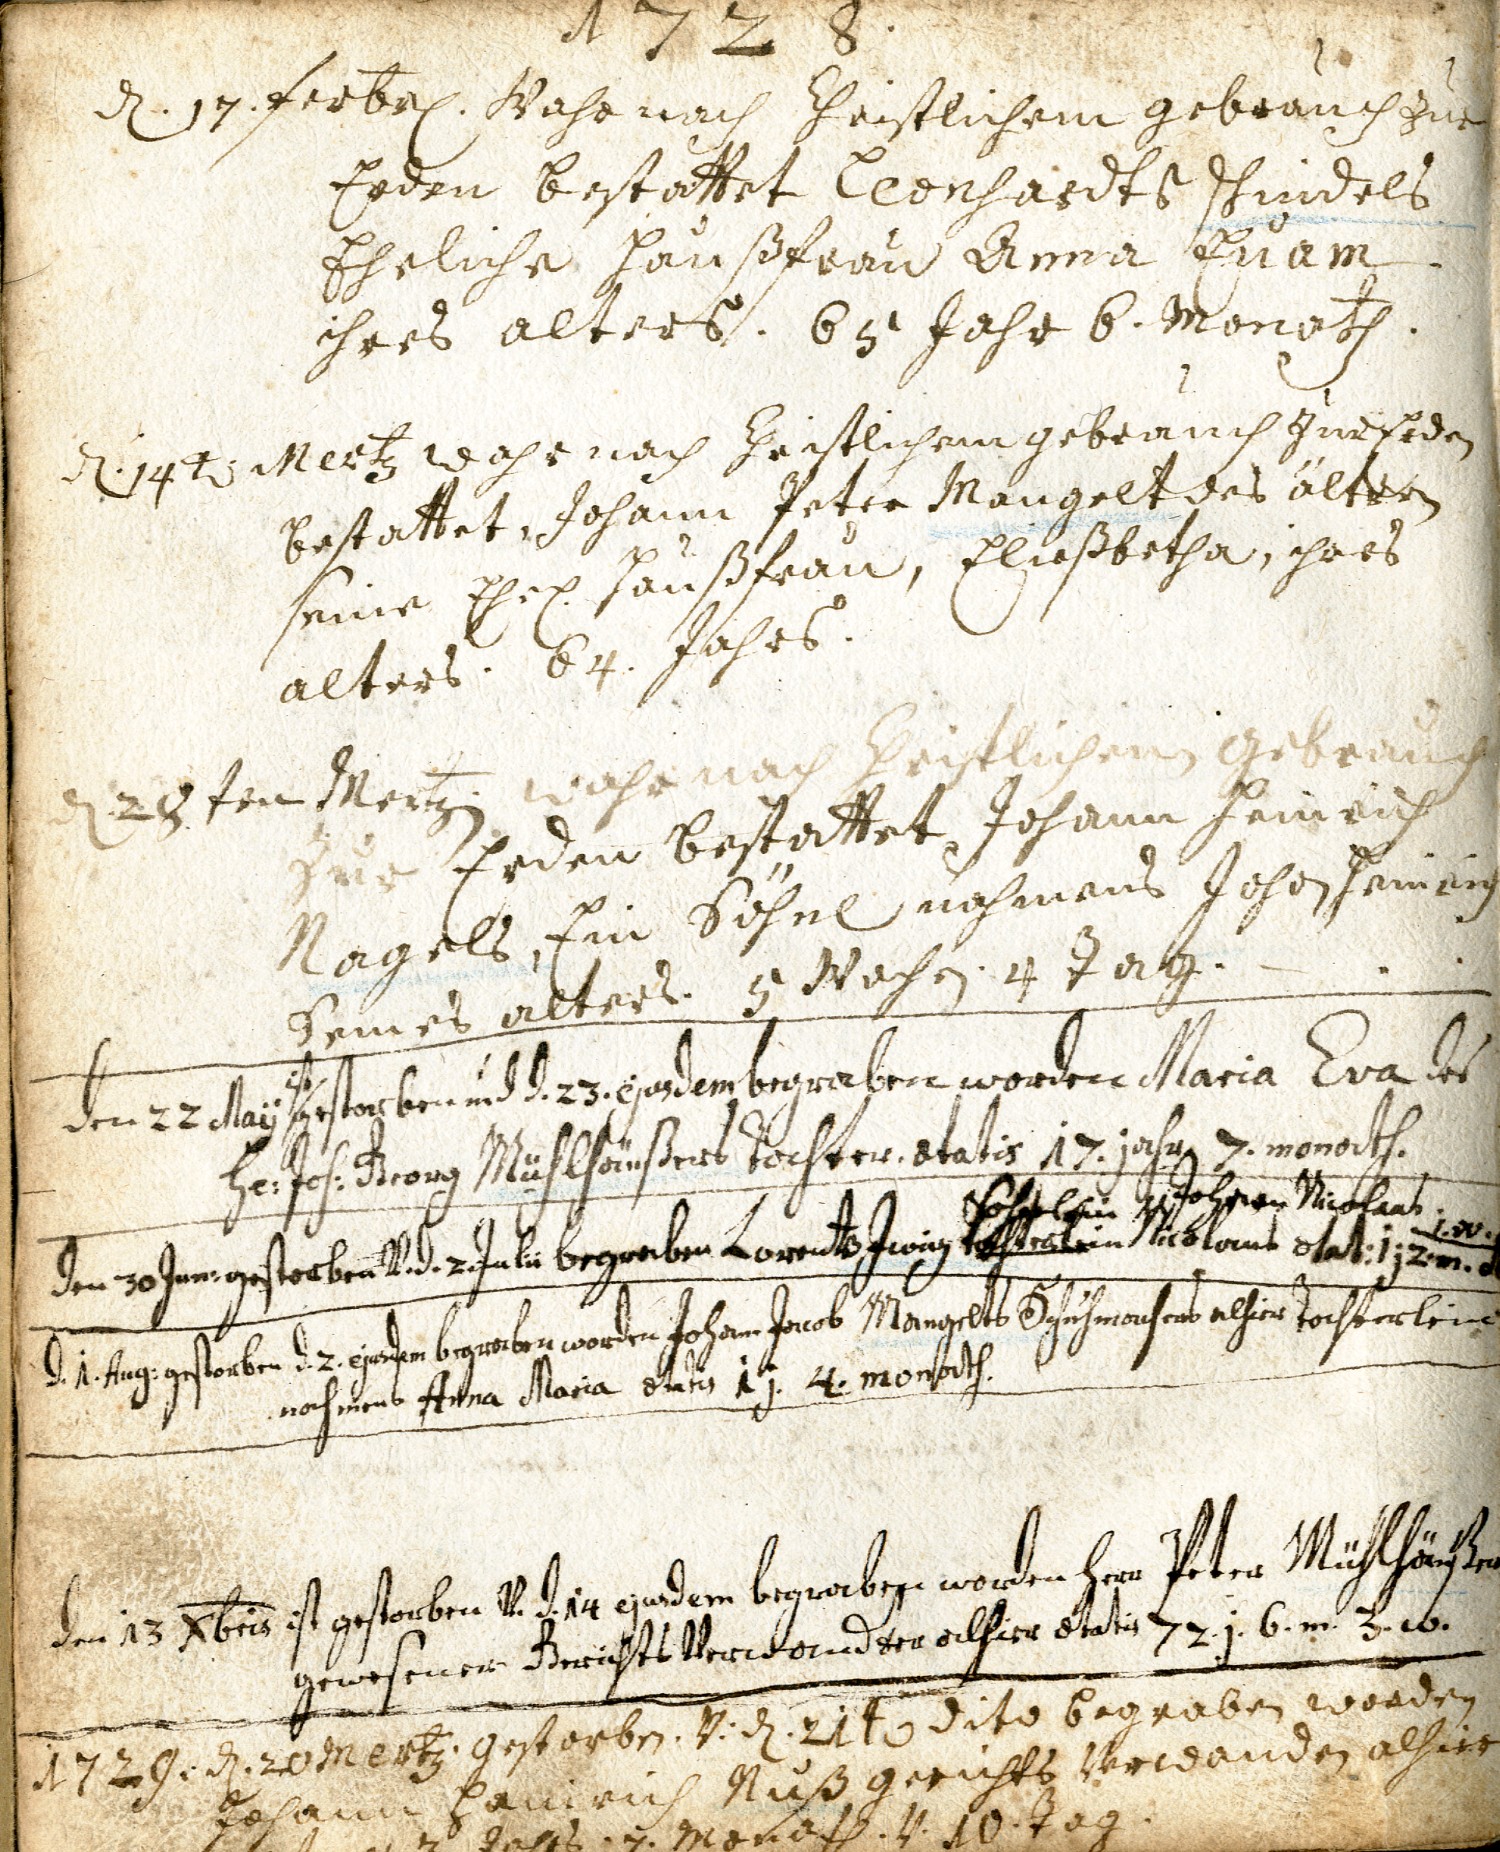 1728.
d. 17. ferbrl. Wahr nach Christlichem gebrauch zur
Erden bestattet Leonhardts Schindels
Eheliche Haußfrau Anna Euam
ihres alters. 65 Jahr 6. Monath.
d. 14t. Mertz wahr nach Christlichem gebrauch zur Erden
bestattet, Johann Peter Mangelt des ältern
seine Ehel. Haußfrau, Eließbetha, ihres
alters. 64. Jahrs.
d. 28ten Mertz. wahr nach Christlichem Gebrauch
zur Erden bestattet Johann Heinrich
Nagels, Ein Söhnl nahmens Johan Heinrich
Seines alters. 5 Wochen. 4 Tag.
den 22 Maÿ ist gestorben und d. 23. ejusdem begraben worden Maria Eva des
He: Joh: Georg Mühlhäußers Tochter. etatis 17. jahr 7. monath.
Söhnlein Johann Nicolaus
den 30 Jun: gestorben V. d. 2 Julii begraben Lorentz Nicolaus etat: 1 j 2. m.
d. 1. Aug: gestorben d. 2. ejusdem begraben worden Johann Jacob Mangelts Schuhmachers alhier Tochterlein
nahmens Anna Maria etatis 1 j. 4. monath.
den 13 Xbris ist gestorben V. d. 14 ejusdem begraben worden Herr Peter Mühlhäußer
gewesener Gerichts Verwandter alhier etatis 72. j. 6. m. 3. w.
1729. d. 20 Mertz. gestorben. V. d. 21t dito begraben worden
Johann Heinrich Nuß gerichts Verwanden alhier
Jahrs. 7. Monath. V. 10. Tag.